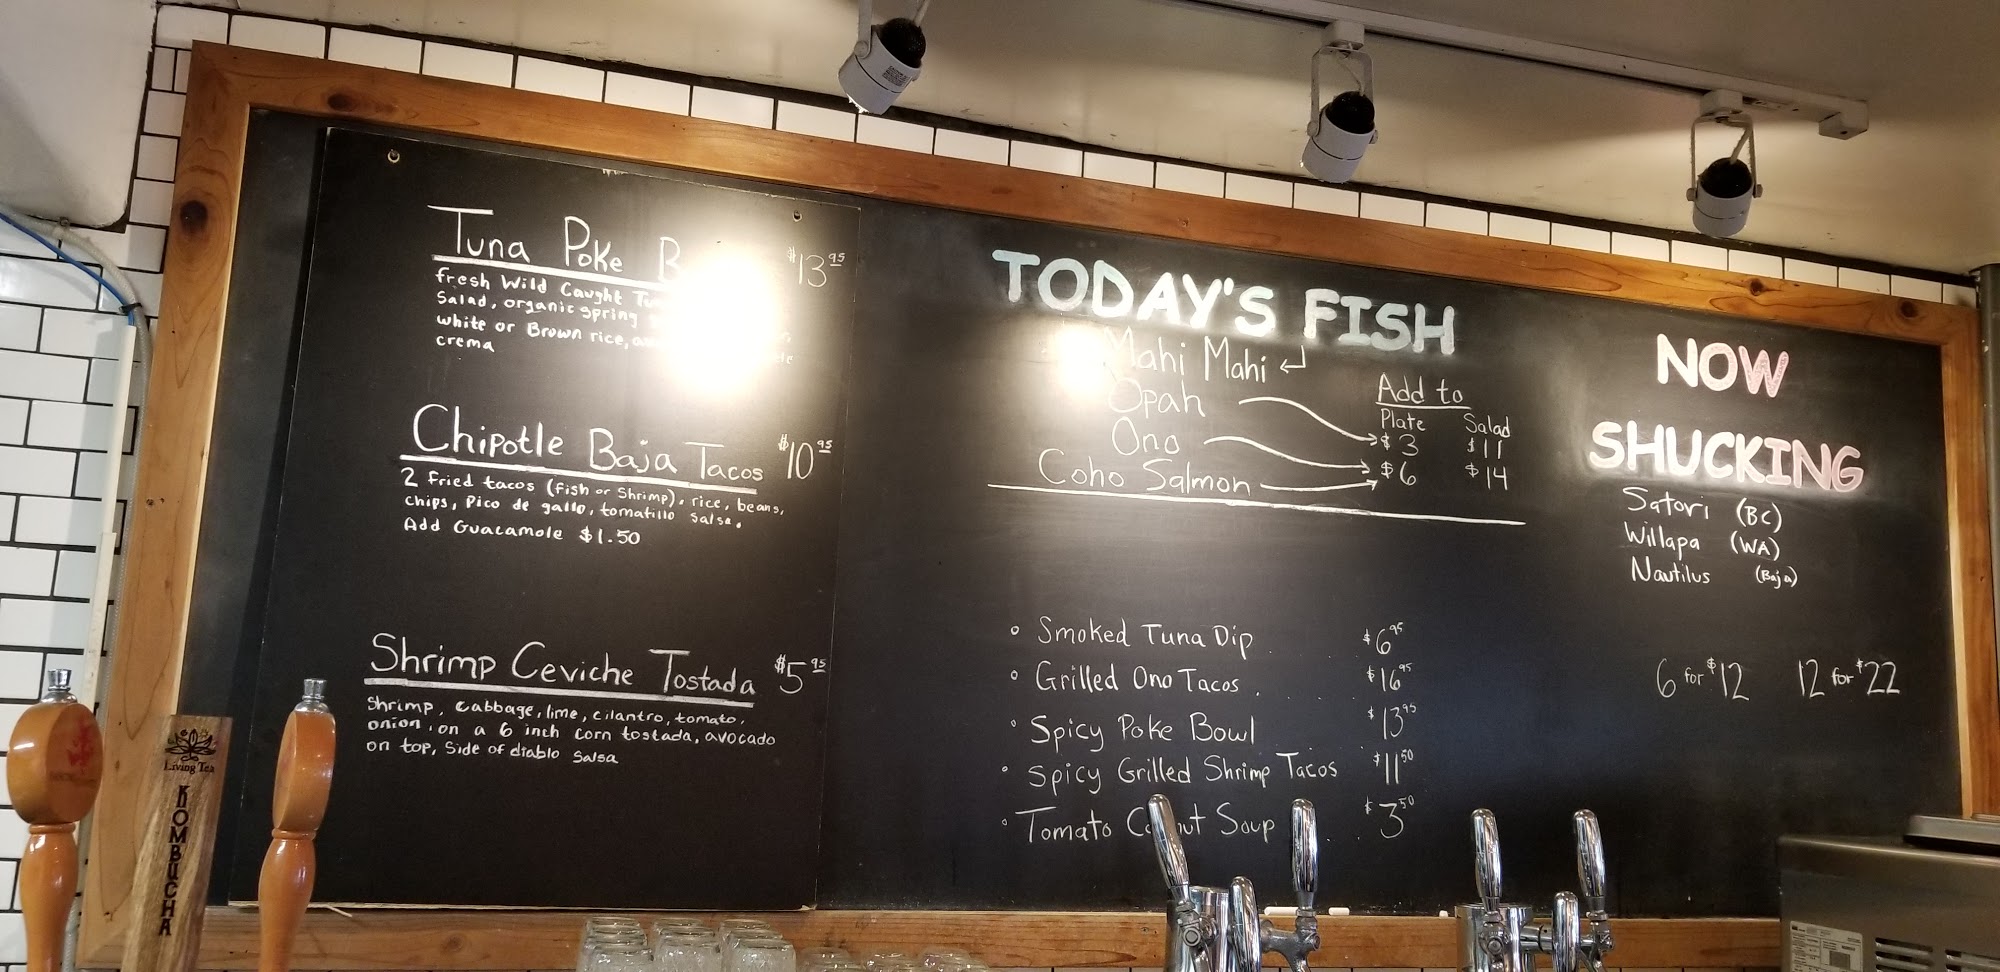 Tuna Poke $13.95
fresh Wild Caught
Salad, organic spring
white or Brown rice,
crema
Chipotle Baja Tacos $10.95
2 Fried tacos (Fish or Shrimp), rice, beans,
chips, Pico de gallo, tomatillo salsa.
Add Guacamole $1.50
Shrimp Ceviche Tostada $5.95
Shrimp, cabbage, lime, cilantro, tomato,
onion, on a 6 inch corn tostada, avocado
on top, Side of diablo Salsa
TODAY'S FISH
Mahi Mahi
Opah
Ono
Coho Salmon
Add to
Plate Salad
$3 $11
$6 $14
Smoked Tuna Dip $6.95
Grilled Ono Tacos $16.95
Spicy Poke Bowl $13.95
Spicy Grilled Shrimp Tacos $11.50
Tomato Soup $3.50
NOW
SHUCKING
Satori (BC)
Willapa (WA)
Nautilus (Baja)
6 for $12 12 for $22
Living Tea
KOMBUCHA